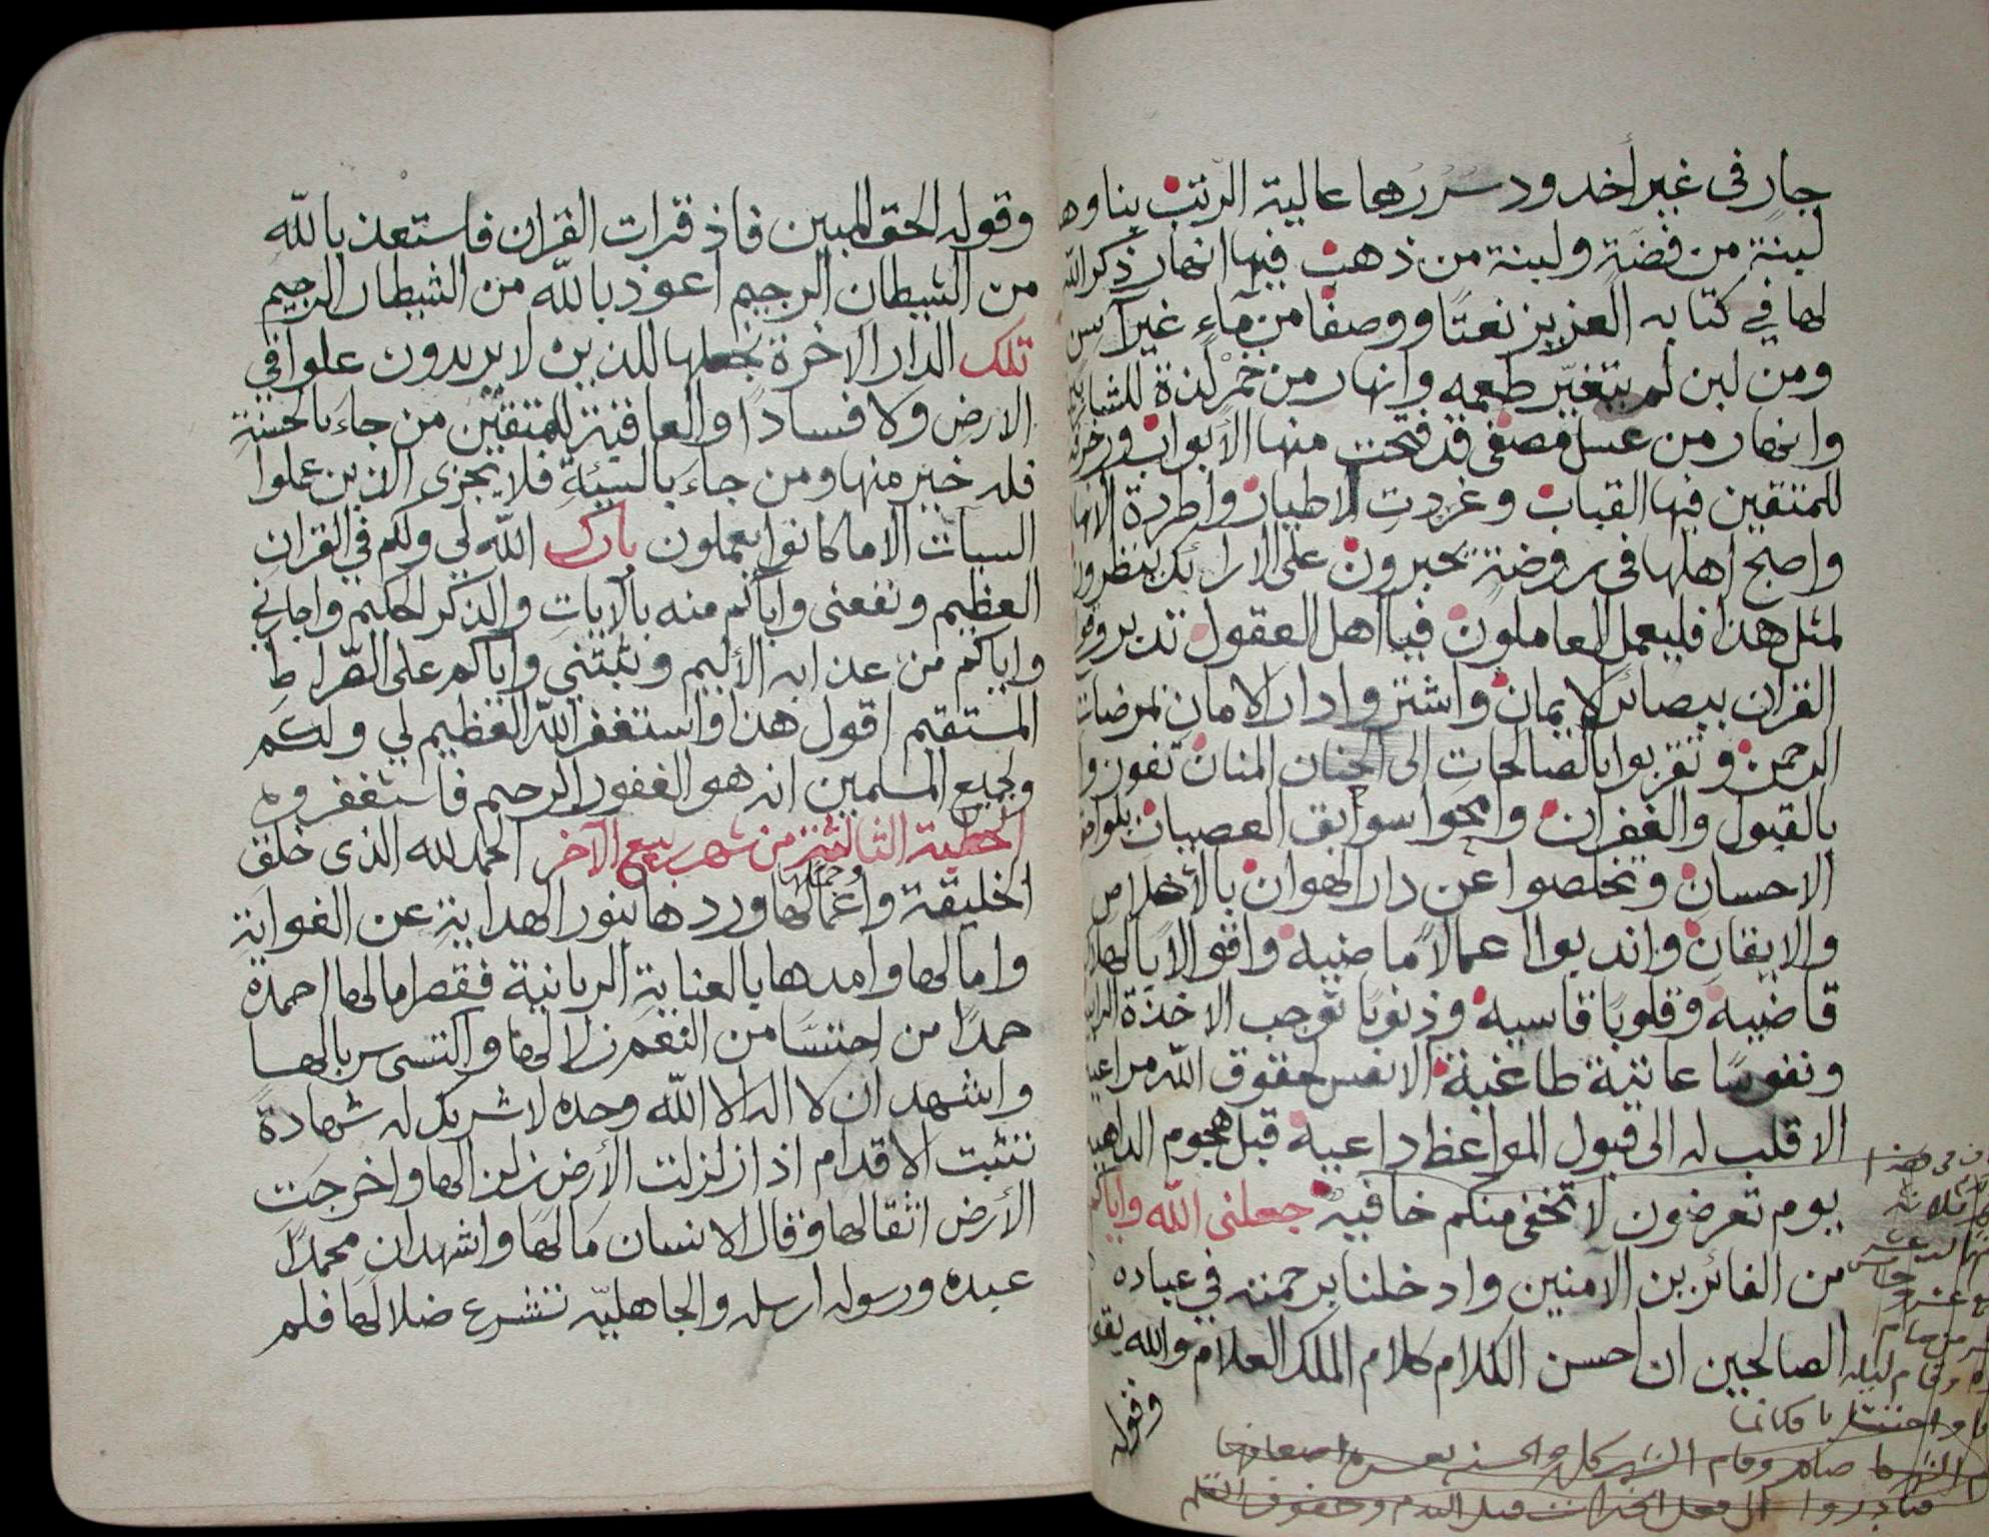 جار في غير أخدود سررها عالية الرتب بناوها
لبنة من فضة ولبنة من ذهب فيها انهار ذكر الله
لها في كتابه العزيز نعتا ووصفا من مآء غير آسن
ومن لبن لم يتغير طعمه وانهار من خمر لذة للشاربين
وانهار من عسل مصفى قد فتحت منها الأبواب وزخرفت
للمتقين فيها القباب وغردت الاطيار واطردة الانهار
واصبح اهلها في روضة يحبرون على الارائك ينظرون
لمثل هذا فليعمل العاملون فيا اهل العقول تدبروا
القران ببصائر الايمان واشتروا دار الامان بمرضات
الرحمن وتقربوا بالصالحات الى الحنان المنان تفوزوا
بالقبول والغفران وامحوا سوابق العصيان بلواحق
الاحسان وتخلصوا عن دار الهوان بالأخلاص
والايقان واندبوا اعمالا ماضيه واقوالا بالهلاك
قاضيه وقلوبا قاسيه وذنوبا توجب الاخذة الرابيه
ونفوسا عاتية طاغية الا نفس لحقوق الله مراعيه
الا قلب له الى قبول المواعظ داعيه قبل هجوم الداهيه
يوم تعرضون لا تخفى منكم خافيه جعلني الله واياكم
من الفائزين الآمنين وادخلنا برحمته في عباده
الصالحين ان احسن الكلام كلام الملك العلام والله يقول
وقوله
صام وقام
وقوله الحق المبين فاذ قرات القران فاستعذ بالله
من الشيطان الرجيم اعوذ بالله من الشيطان الرجيم
تلك الدار الاخرة نجعلها للذين لا يريدون علوا في
الارض ولا فسادا والعاقبة للمتقين من جاء بالحسنة
فله خير منها ومن جاء بالسيئة فلا يجزى الذين عملوا
السيات الا ما كانوا يعملون بارك الله لي ولكم في القران
العظيم ونفعني واياكم منه بالآيات والذكر الحكيم واجاني
واياكم من عذابه الأليم وثبتني واياكم على الصراط
المستقيم اقول هذا واستغفر الله العظيم لي ولكم
ولجميع المسلمين انه هو الغفور الرحيم فاستغفروه
الخطبة الثالثة من شهر ربيع الآخر الحمد لله الذي خلق
الخليقة واعمالها وردها بنور الهداية عن الغواية
وامالها وامدها بالعناية الربانية فقصر امالها احمده
حمدا من احتسا من النعم زلالها واكتسى سربالها
واشهد ان لا اله الا الله وحده لا شريك له شهادة
تثبت الاقدام اذا زلزلت الأرض زلزالها واخرجت
الأرض اثقالها وقال الانسان مالها واشهد ان محمدا
عبده ورسوله ارسله والجاهليه تشرع ضلالها فلم